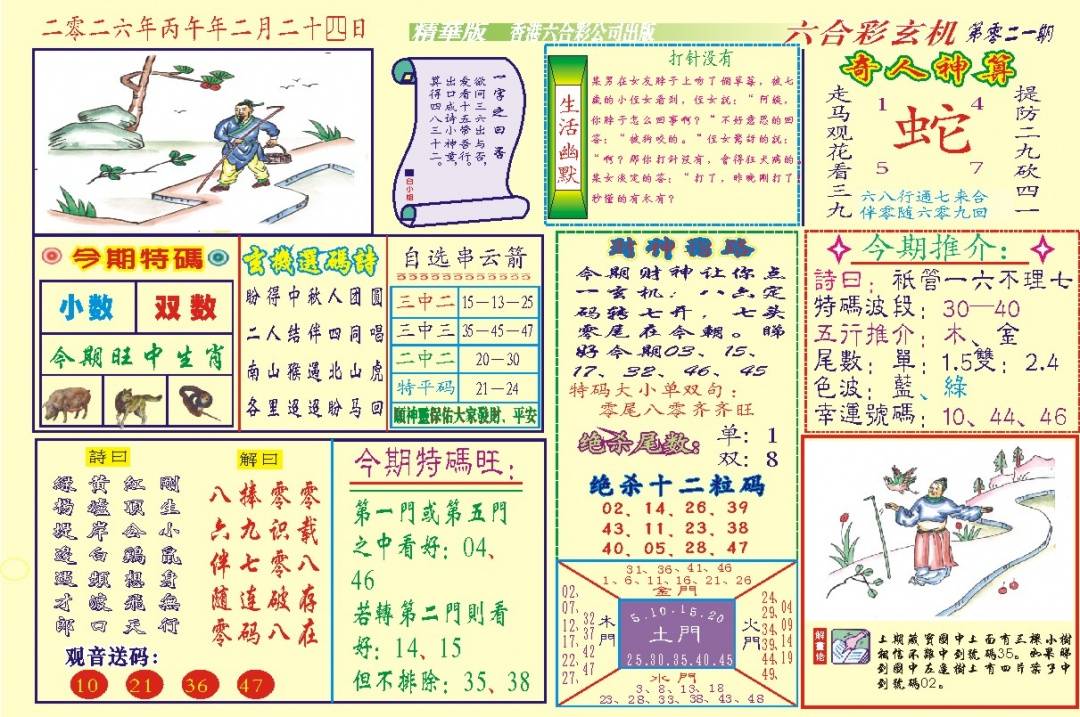 二零二六年丙午年二月二十四日
精華版 香港六合彩公司出版
六合彩玄机 第零二一期
一字之曰否
欲问三六出与否,
爱看五带吾行。
出口成十诗小神童,
算得四八三十二。
白小姐
生活幽默
打针没有
某男在女友脖子上吻了個草莓,被七
歲的小侄女看到,侄女説:“阿姨,
你脖子怎么回事啊?”不好意思的回
答:“被狗咬的。”侄女驚訝的説:
“啊?那你打针没有,會得狂犬病的。
某女淡定的答:“打了,昨晚刚打了
秒懂的有木有?
奇人神算
走马观花看三九
1 4
蛇
5 7
提防二九砍四一
六八行通七来合
伴零随六零九回
今期特碼
小数 双数
今期旺中生肖
玄機選碼詩
盼得中秋人团圆
二人结伴四同唱
南山猴遇北山虎
各里逕逕盼马回
自选串云箭
三中二 15—13—25
三中三 35—45—47
二中二 20—30
特平码 21—24
順神靈保佑大家發財、平安
财神稳路
今期财神让你点
一玄机:八六定
码转七开,七头
零尾在今朝。睇
好今期03、15、
17、32、46、45
特码大小单双句:
零尾八零齐齐旺
绝杀尾数: 单:1
双:8
绝杀十二粒码
02、14、26、39
43、11、23、38
40、05、28、47
今期推介:
詩曰:祇管一六不理七
特碼波段:30—40
五行推介:木、金
尾數:單:1.5雙:2.4
色波:藍、綠
幸運號碼:10、44、46
詩曰
剛生小鼠身無行
红頂公鷄想飛天
黄墟岸白頻渡口
綠楊堤邊遇才郎
解曰
零载八存在
零识零破八
捧九七连码
八六伴随零
观音送码:
10 21 36 47
今期特碼旺:
第一門或第五門
之中看好:04、
46
若轉第二門則看
好:14、15
但不排除:35、38
31、36、41、46
1、6、11、16、21、26
金門
02、07、12、17、22、27、
32、37、42、47
木門
5.10.15.20
土門
25.30.35.40.45
火門
24、29、34、39、44、49、
04、09、14、19
水門
3、8、13、18
23、28、33、38、43、48
解畫佬
上期藏寶圖中上面有三棵小樹
相信不難中到號碼35。如果睇
到圖中左邊樹上有四片葉子中
到號碼02。